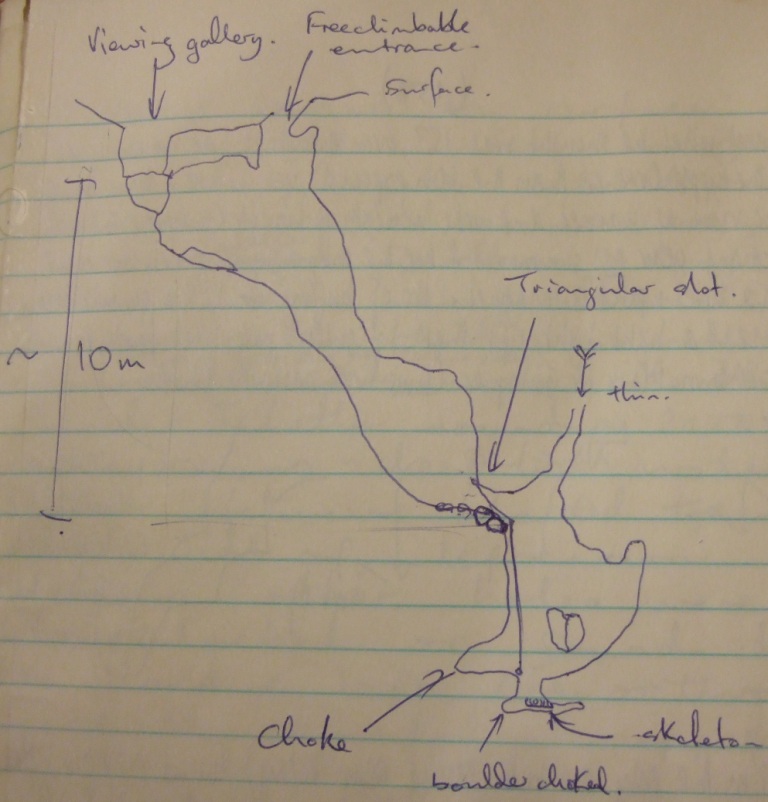 Viewing gallery.
Freeclimbable
entrance.
Surface.
Triangular slot.
~ 10m
thin.
Choke
skeleton
boulder choked.